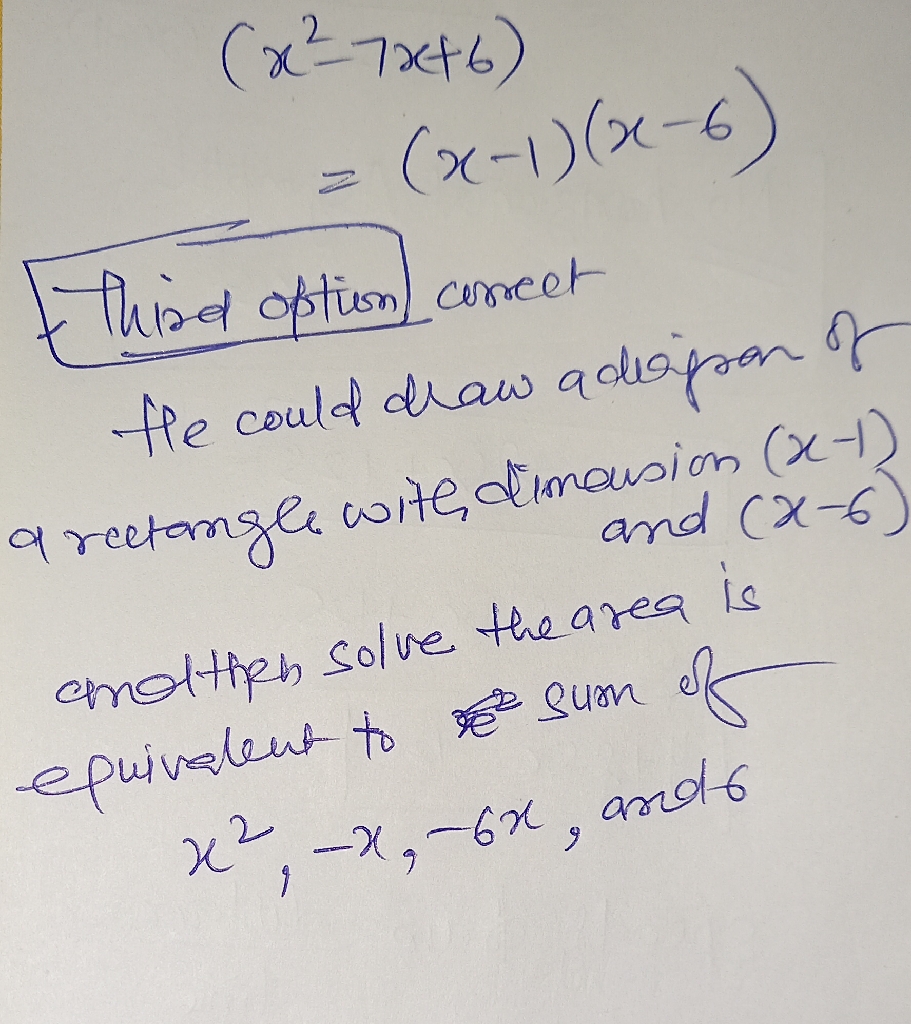 (x²-7x+6)
= (x-1)(x-6)
Third option correct
He could draw a diagram of
a rectangle with dimension (x-1)
and (x-6)
and then solve the area is
equivalent to sum of
x², -x, -6x, and 6